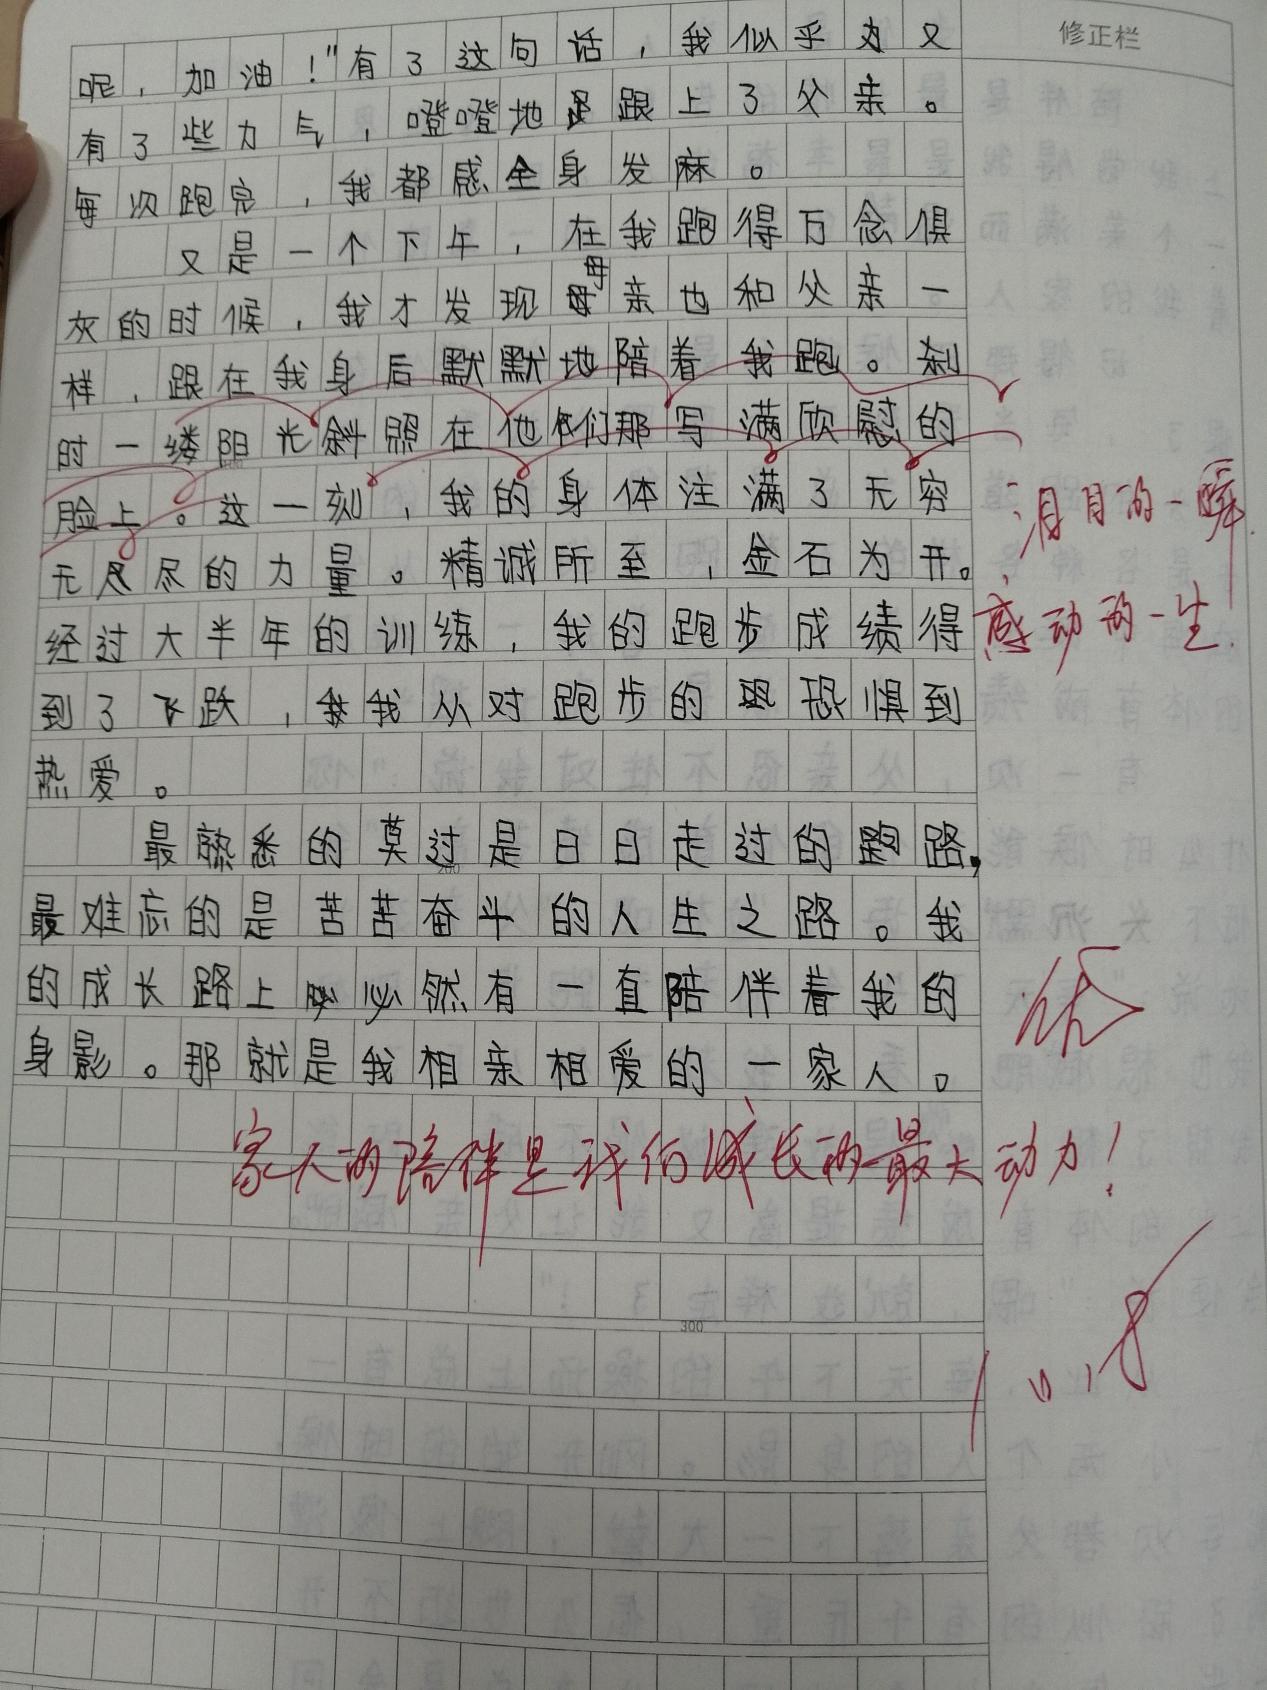 修正栏
呢，加油！"有了这句话，我似乎又
有了些力气，噔噔地跟上了父亲。
每次跑完，我都感全身发麻。
又是一个下午，在我跑得万念俱
灰的时候，我才发现母亲也和父亲一
样，跟在我身后默默地陪着我跑。刹
时一缕阳光斜照在他们那写满欣慰的
脸上。这一刻，我的身体注满了无穷
无尽的力量。精诚所至，金石为开。
泪目的一瞬
经过大半年的训练，我的跑步成绩得
感动的一生
到了飞跃，我从对跑步的恐惧到
热爱。
最熟悉的莫过是日日走过的路，
200
最难忘的是苦苦奋斗的人生之路。我
的成长路上必然有一直陪伴着我的
优
身影。那就是我相亲相爱的一家人。
家人的陪伴是我们成长的最大动力！
300